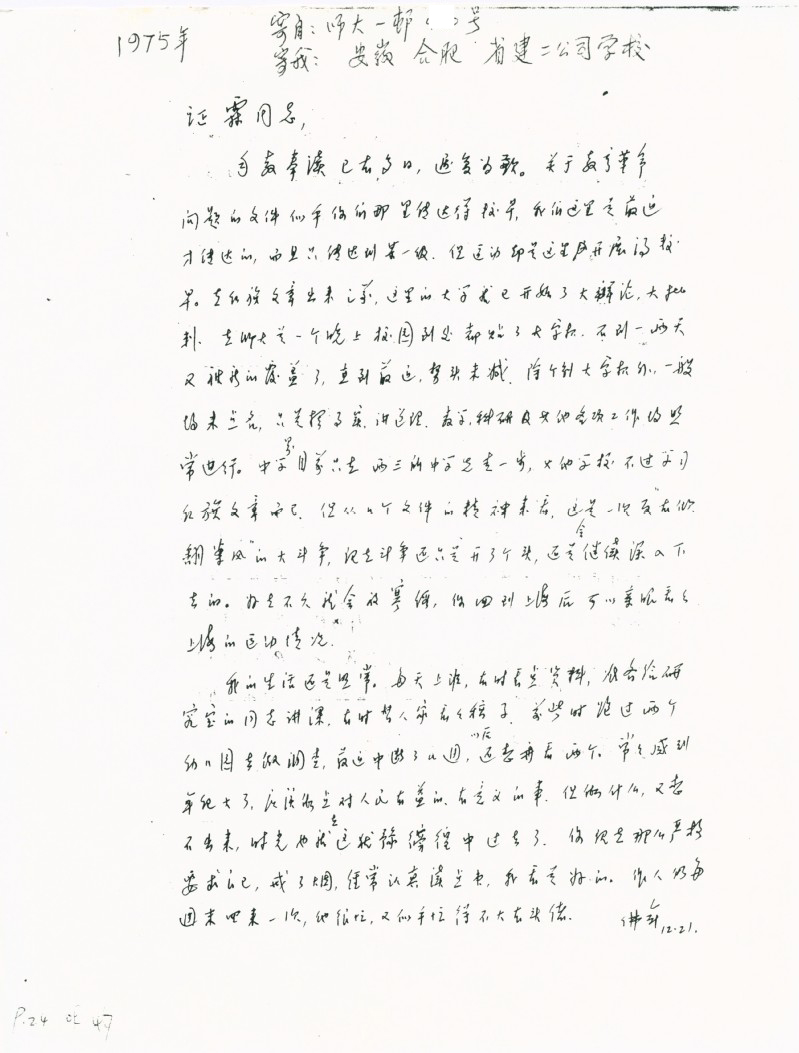 1975年
寄自：师大一邨 号
寄我：安徽 合肥 省建二公司学校
证霖同志，
自教奉读已有多日，迟复为歉。关于教育革命
问题的文件似乎你们那里传达得较早，我们这里是最近
才传达的，而且只传达到某一级。但运动却是这里展开应该较
早。在红旗文章出来之前，这里的大学就已开始了大辩论，大批
判。在师大是一个晚上校园到处都贴了大字报，不到一两天
又被新的覆盖了，直到最近，势头未减。除个别大字报外，一般
均未点名，只是摆事实，讲道理。教学，科研及其他各项工作均照
常进行。中学界目前只在两三所中学先走一步，其他学校不过学习
红旗文章而已。但从几个文件的精神来看，这是一次反“右倾
翻案风”的大斗争，现在斗争还只是开了个头，还是会继续深入下
去的。好在不久就会放寒假，你回到上海后可以亲眼看看
上海的运动情况。
我的生活还是照常。每天上班，有时看点资料，准备给研
究室的同志讲课，有时替人家看看稿子。前些时跑过两个
幼儿园去做调查，最近中断了几周，以后还想再看两个。常常感到
年纪大了，应该做点对人民有益的、有意义的事，但做什么，又想
不出来，时光也就在这犹豫徬徨中过去了。你现在那么严格
要求自己，戒了烟，经常认真读点书，我看是好的。作人仍每
周末回来一次，他很忙，又似乎忙得不大有头绪。
佛年 12.21.
P.24 of 47